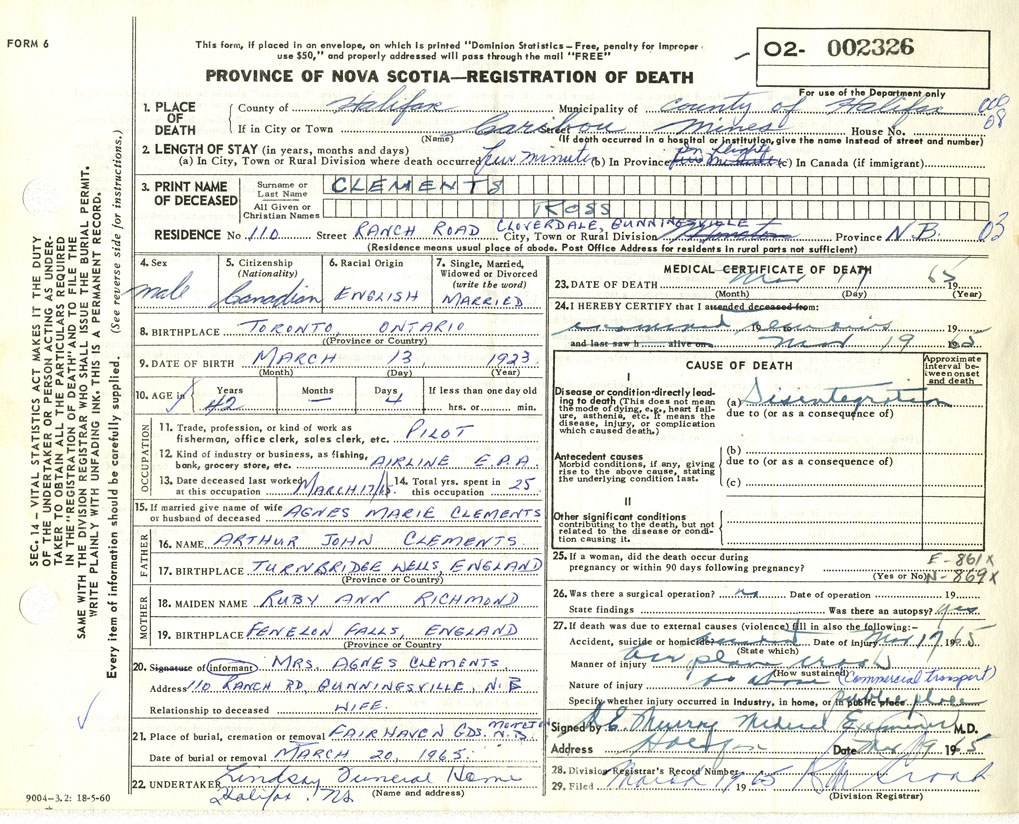 FORM 6
This form, if placed in an envelope, on which is printed "Dominion Statistics – Free, penalty for improper
use $50," and properly addressed will pass through the mail "FREE"
O2- 002326
For use of the Department only
PROVINCE OF NOVA SCOTIA—REGISTRATION OF DEATH
1. PLACE OF DEATH County of Halifax Municipality of County of Halifax
If in City or Town Caribou Mines Street House No.
(Name) (If death occurred in a hospital or institution, give the name instead of street and number)
2. LENGTH OF STAY (in years, months and days)
(a) In City, Town or Rural Division where death occurred few minutes (b) In Province on flight (c) In Canada (if immigrant)
3. PRINT NAME OF DECEASED
Surname or Last Name CLEMENTS
All Given or Christian Names ROSS
RESIDENCE No. 110 Street RANCH ROAD CLOVERDALE, GUNNINGSVILLE City, Town or Rural Division Moncton Province N.B. 03
(Residence means usual place of abode. Post Office Address for residents in rural parts not sufficient)
4. Sex male
5. Citizenship (Nationality) Canadian
6. Racial Origin ENGLISH
7. Single, Married, Widowed or Divorced (write the word) MARRIED
8. BIRTHPLACE TORONTO, ONTARIO
(Province or Country)
9. DATE OF BIRTH MARCH 13, 1923
(Month) (Day) (Year)
10. AGE in Years 42 Months — Days 4 If less than one day old hrs. or min.
OCCUPATION
11. Trade, profession, or kind of work as fisherman, office clerk, sales clerk, etc. PILOT
12. Kind of industry or business, as fishing, bank, grocery store, etc. AIRLINE E.P.A.
13. Date deceased last worked at this occupation MARCH 17/65
14. Total yrs. spent in this occupation 25
15. If married give name of wife or husband of deceased AGNES MARIE CLEMENTS
FATHER
16. NAME ARTHUR JOHN CLEMENTS
17. BIRTHPLACE TURNBRIDGE WELLS, ENGLAND
(Province or Country)
MOTHER
18. MAIDEN NAME RUBY ANN RICHMOND
19. BIRTHPLACE FENELON FALLS, ENGLAND
(Province or Country)
20. Signature of informant MRS. AGNES CLEMENTS
Address 110 RANCH RD, GUNNINGSVILLE, N.B
Relationship to deceased WIFE.
21. Place of burial, cremation or removal FAIRHAVEN GDS. MONCTON N.B.
Date of burial or removal MARCH 20, 1965.
22. UNDERTAKER Lindsay Funeral Home
Halifax, NS (Name and address)
9004-3.2: 18-5-60
MEDICAL CERTIFICATE OF DEATH
23. DATE OF DEATH Mar 17 1965
(Month) (Day) (Year)
24. I HEREBY CERTIFY that I attended deceased from:
examined remains 19
and last saw h alive on Mar 19 19
CAUSE OF DEATH
Approximate interval between onset and death
I
Disease or condition directly leading to death (This does not mean the mode of dying, e.g., heart failure, asthenia, etc. It means the disease, injury, or complication which caused death.)
(a) Disintegration
due to (or as a consequence of)
Antecedent causes
Morbid conditions, if any, giving rise to the above cause, stating the underlying condition last.
(b)
due to (or as a consequence of)
(c)
II
Other significant conditions
contributing to the death, but not related to the disease or condition causing it.
25. If a woman, did the death occur during pregnancy or within 90 days following pregnancy? (Yes or No)
E-861x
N-869x
26. Was there a surgical operation? no Date of operation 19
State findings Was there an autopsy? yes
27. If death was due to external causes (violence) fill in also the following:–
Accident, suicide or homicide accident Date of injury Mar 17 1965
(State which)
Manner of injury air plane crash
(How sustained)
Nature of injury as above (Commercial transport)
Specify whether injury occurred in Industry, in home, or in public place public place
Signed by D.E. Murray Medical Examiner M.D.
Address Halifax Date Mar 19 1965
28. Division Registrar's Record Number
29. Filed March 19 1965
(Division Registrar)
SEC. 14 – VITAL STATISTICS ACT MAKES IT THE DUTY
OF THE UNDERTAKER OR PERSON ACTING AS UNDER-
TAKER TO OBTAIN ALL THE PARTICULARS REQUIRED
IN THE "REGISTRATION OF DEATH" AND TO FILE THE
SAME WITH THE DIVISION REGISTRAR WHO SHALL ISSUE THE BURIAL PERMIT.
WRITE PLAINLY WITH UNFADING INK. THIS IS A PERMANENT RECORD.
Every item of information should be carefully supplied. (See reverse side for instructions.)